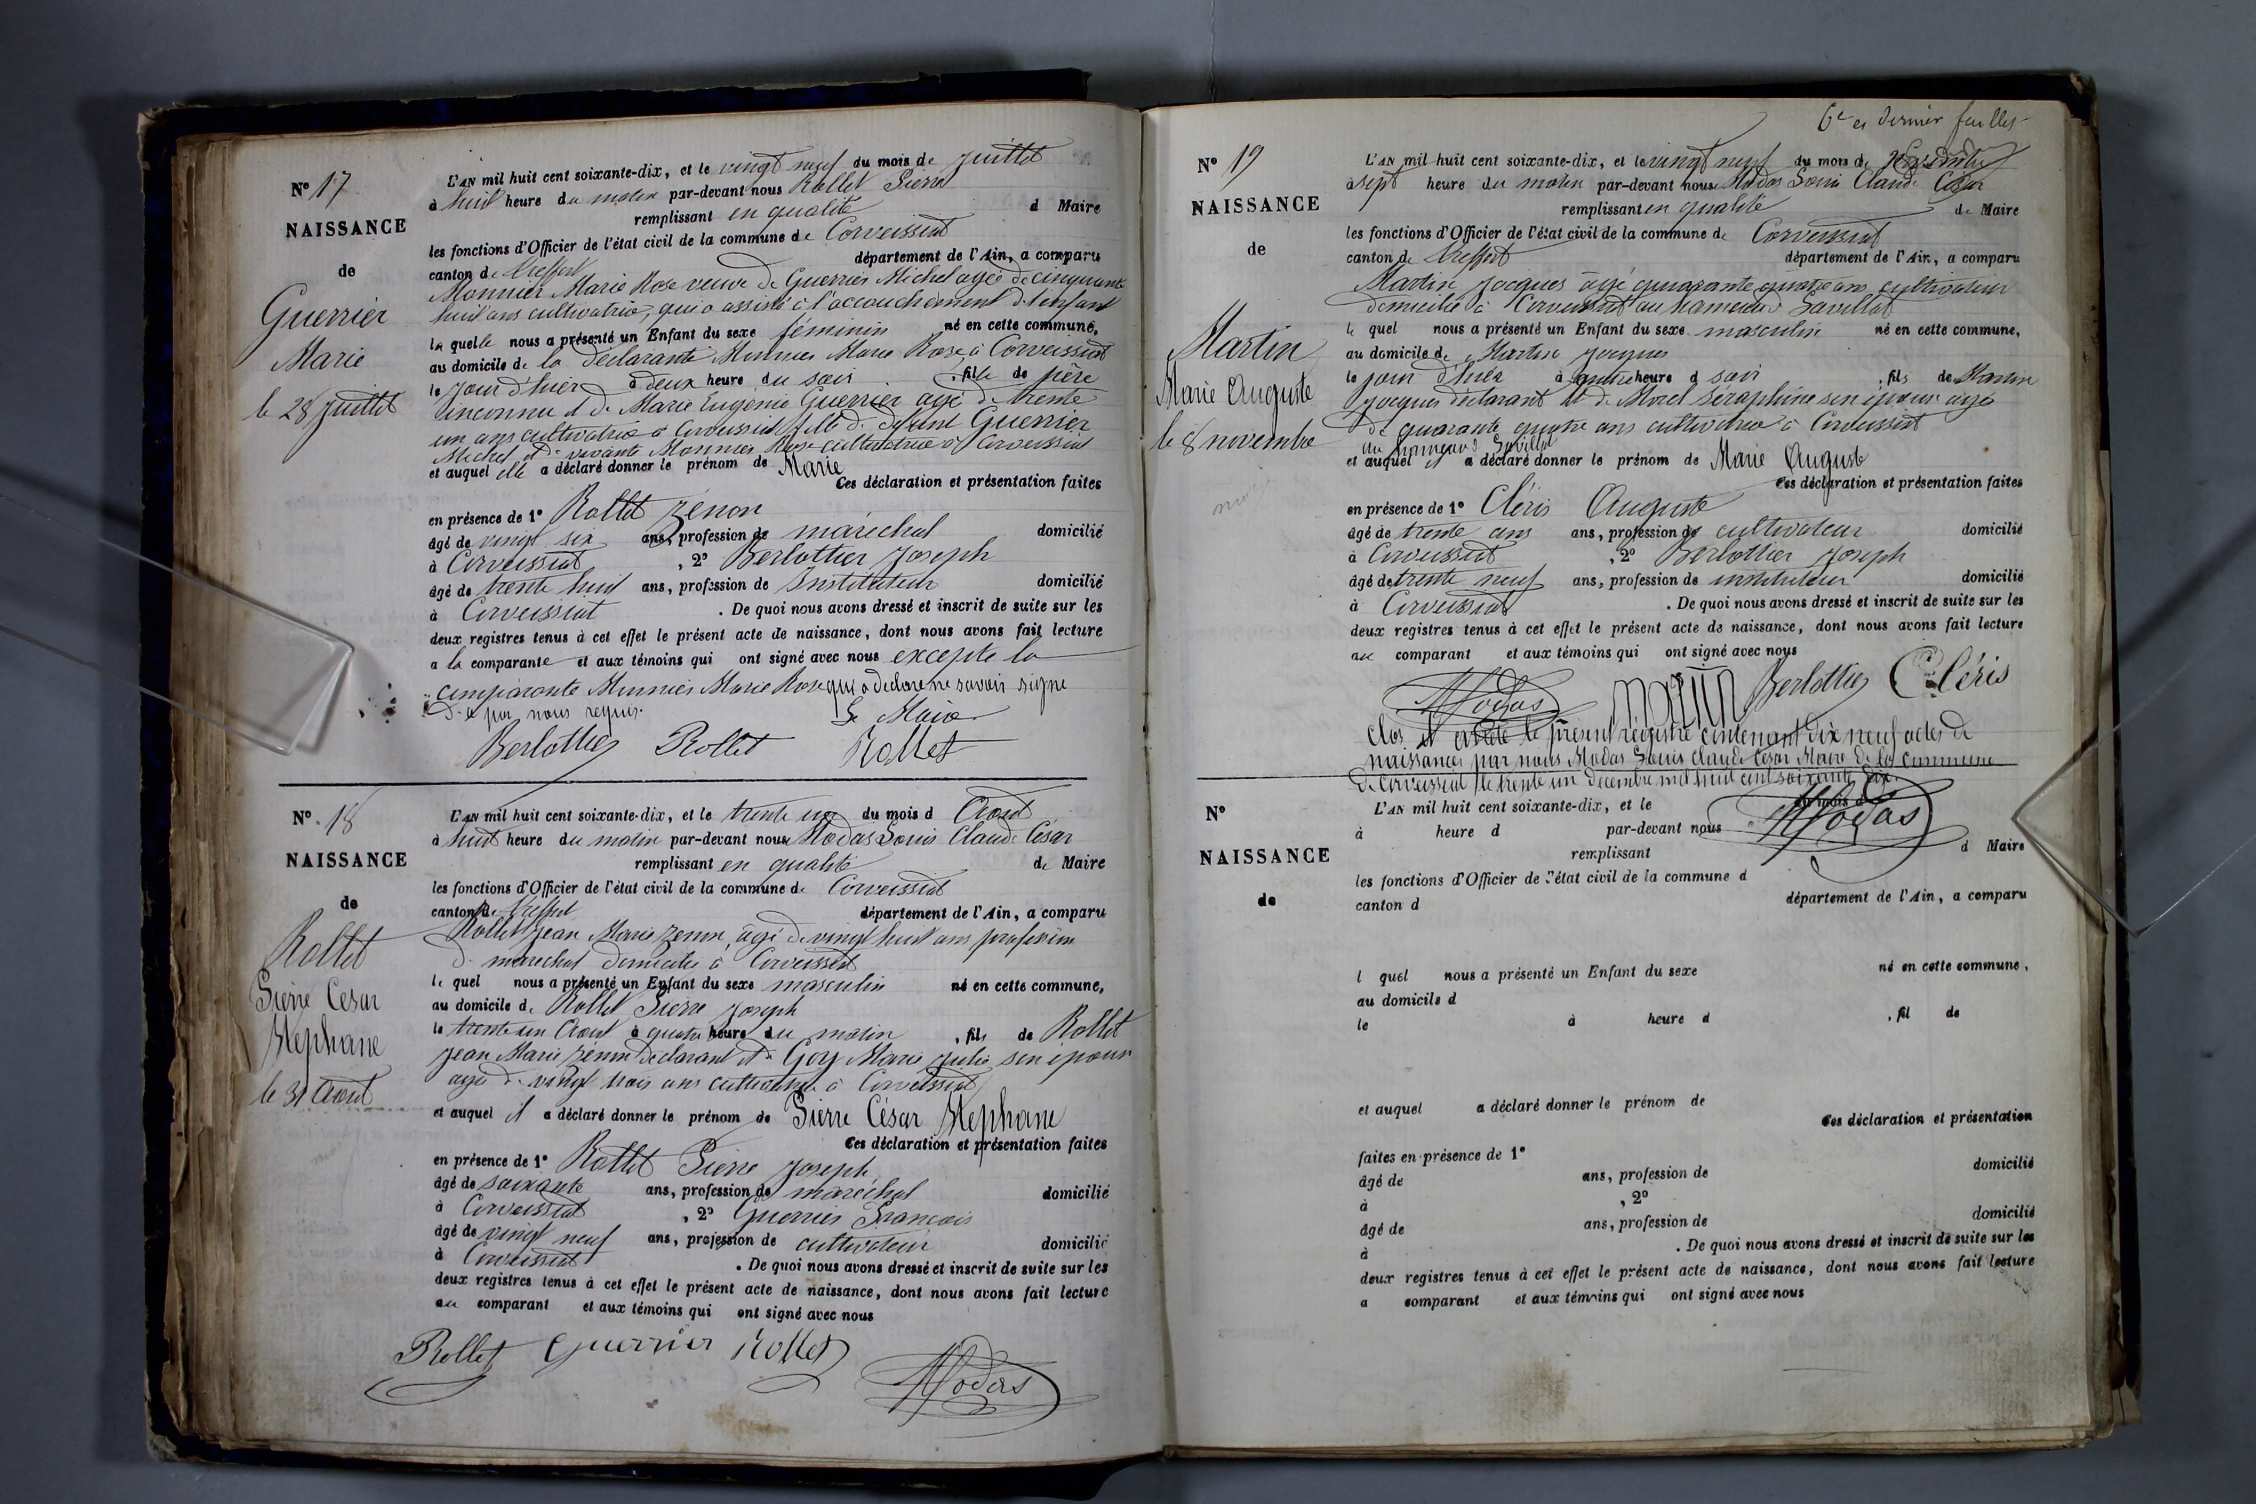 N° 17
NAISSANCE
de
Guerrier
Marie
le 28 juillet
L'AN mil huit cent soixante-dix, et le vingt neuf du mois de juillet
à huit heure du matin par-devant nous Rollet Pierre
remplissant en qualité de Maire
les fonctions d'Officier de l'état civil de la commune de Corveissiat
canton de Treffort département de l'Ain, a comparu
Monnier Marie Rose veuve de Guerrier Michel agée de cinquante
huit ans cultivatrice, qui a assisté à l'accouchement de l'enfant
la quelle nous a présenté un Enfant du sexe féminin né en cette commune,
au domicile de la déclarante Monnier Marie Rose à Corveissiat
le jour d'hier à deux heure du soir , fille de père
inconnu et de Marie Eugénie Guerrier agé de trente
un ans cultivatrice à Corveissiat fille de défunt Guerrier
Michel et de vivante Monnier Rose cultivatrice à Corveissiat
et auquel elle a déclaré donner le prénom de Marie
Ces déclaration et présentation faites
en présence de 1° Rollet Zénon
âgé de vingt six ans, profession de maréchal domicilié
à Corveissiat , 2° Berlottier Joseph
âgé de trente huit ans, profession de Instituteur domicilié
à Corveissiat . De quoi nous avons dressé et inscrit de suite sur les
deux registres tenus à cet effet le présent acte de naissance, dont nous avons fait lecture
a la comparante et aux témoins qui ont signé avec nous excepté la
comparante Monnier Marie Rose qui a déclaré ne savoir signe
de ce par nous requis. Le Maire
Berlottier Rollet Rollet
N° 18
NAISSANCE
de
Rollet
Pierre Cesar
Stephane
le 31 Aout
L'AN mil huit cent soixante-dix, et le trente un du mois d Aout
à huit heure du matin par-devant nous Modas Louis Claude César
remplissant en qualité de Maire
les fonctions d'Officier de l'état civil de la commune de Corveissiat
canton de Treffort département de l'Ain, a comparu
Rollet Jean Marie Zenon, âgé de vingt huit ans profession
de marechal domicilié à Corveissiat
le quel nous a présenté un Enfant du sexe masculin né en cette commune,
au domicile de Rollet Pierre Joseph
le trente un Aout à quatre heure du matin , fils de Rollet
Jean Marie Zénon déclarant et de Goy Marie Julie son épouse
agée de vingt trois ans cultivatrice à Corveissiat
et auquel il a déclaré donner le prénom de Pierre César Stephane
Ces déclaration et présentation faites
en présence de 1° Rollet Pierre Joseph
âgé de soixante ans, profession de maréchal domicilié
à Corveissiat , 2° Guerrier Francois
âgé de vingt neuf ans, profession de cultivateur domicilié
à Corveissiat . De quoi nous avons dressé et inscrit de suite sur les
deux registres tenus à cet effet le présent acte de naissance, dont nous avons fait lecture
au comparant et aux témoins qui ont signé avec nous
Rollet Guerrier Rollet Modas
6e et dernier feuillet
N° 19
NAISSANCE
de
Martin
Marie Auguste
le 8 novembre
L'AN mil huit cent soixante-dix, et le vingt neuf du mois de Novembre
à sept heure du matin par-devant nous Modas Louis Claude César
remplissant en qualité de Maire
les fonctions d'Officier de l'état civil de la commune de Corveissiat
canton de Treffort département de l'Ain, a comparu
Martin Jacques âgé quarante quatre ans cultivateur
domicilié à Corveissiat au hameau de Savillat
le quel nous a présenté un Enfant du sexe masculin né en cette commune,
au domicile de Martin Jacques
le jour d'hier à quatre heure d soir , fils de Martin
Jacques déclarant et de Morel Séraphine son épouse agée
de quarante quatre ans cultivatrice à Corveissiat
au hameau de Savillat
et auquel il a déclaré donner le prénom de Marie Auguste
Ces déclaration et présentation faites
en présence de 1° Cléris Auguste
âgé de trente ans ans, profession de cultivateur domicilié
à Corveissiat , 2° Berlottier Joseph
âgé de trente neuf ans, profession de instituteur domicilié
à Corveissiat . De quoi nous avons dressé et inscrit de suite sur les
deux registres tenus à cet effet le présent acte de naissance, dont nous avons fait lecture
au comparant et aux témoins qui ont signé avec nous
Modas Martin Berlottier Cléris
Clos et arrêté le présent régistre contenant dix neuf actes de
naissances par nous Modas Louis Claude César Maire de la commune
de Corveissiat le trente un décembre mil huit cent soixante dix.
Modas
N°
NAISSANCE
de
L'AN mil huit cent soixante-dix, et le du mois d
à heure d par-devant nous
remplissant d Maire
les fonctions d'Officier de l'état civil de la commune d
canton d département de l'Ain, a comparu
l quel nous a présenté un Enfant du sexe né en cette commune,
au domicile d
le à heure d , fil de
et auquel a déclaré donner le prénom de
Ces déclaration et présentation
faites en présence de 1°
âgé de ans, profession de domicilié
à , 2°
âgé de ans, profession de domicilié
à . De quoi nous avons dressé et inscrit de suite sur les
deux registres tenus à cet effet le présent acte de naissance, dont nous avons fait lecture
a comparant et aux témoins qui ont signé avec nous